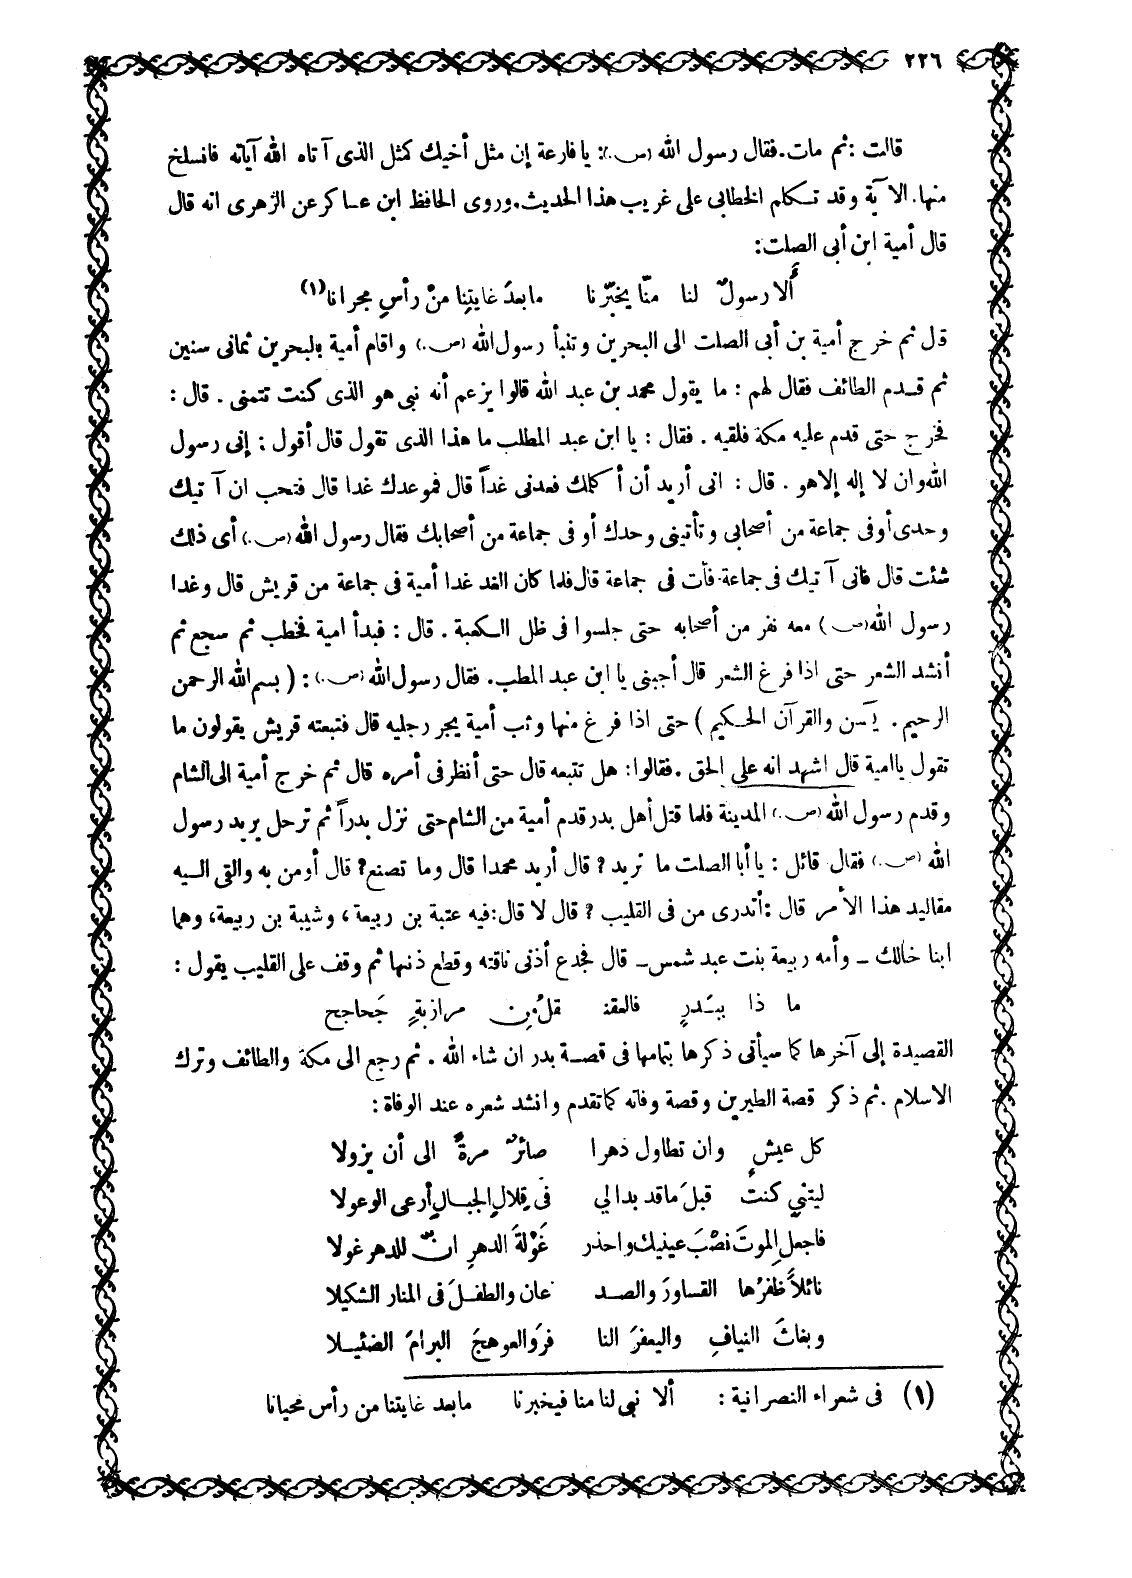 ٢٢٦
قالت : ثم مات . فقال رسول الله (ص.) : يا فارعة إن مثل أخيك كمثل الذى آتاه الله آياته فانسلخ
منها . الآية وقد تكلم الخطابى على غريب هذا الحديث . وروى الحافظ ابن عساكر عن الزهرى انه قال
قال أمية ابن أبى الصلت :
ألا رسولٌ لنا منّا يخبّرنا مابعدَ غايتِنا منْ رأسِ مجرانا (١)
قال ثم خرج أمية بن أبى الصلت الى البحرين وتنبأ رسول الله (ص.) واقام أمية بالبحرين ثمانى سنين
ثم قدم الطائف فقال لهم : ما يقول محمد بن عبد الله قالوا يزعم أنه نبى هو الذى كنت تتمنى . قال :
فخرج حتى قدم عليه مكة فلقيه . فقال : يا ابن عبد المطلب ما هذا الذى تقول قال أقول : إنى رسول
الله وان لا إله إلا هو . قال : انى أريد أن أكلمك فعدنى غداً قال فموعدك غدا قال فتحب ان آتيك
وحدى أو فى جماعة من أصحابى وتأتينى وحدك أو فى جماعة من أصحابك فقال رسول الله (ص.) أى ذلك
شئت قال فانى آتيك فى جماعة فأت فى جماعة قال فلما كان الغد غدا أمية فى جماعة من قريش قال وغدا
رسول الله (ص.) معه نفر من أصحابه حتى جلسوا فى ظل الكعبة . قال : فبدأ امية فخطب ثم سجع ثم
أنشد الشعر حتى اذا فرغ الشعر قال أجبنى يا ابن عبد المطلب . فقال رسول الله (ص.) : ( بسم الله الرحمن
الرحيم . يس والقرآن الحكيم ) حتى اذا فرغ منها وثب أمية يجر رجليه قال فتبعته قريش يقولون ما
تقول يا امية قال اشهد انه على الحق . فقالوا : هل تتبعه قال حتى أنظر فى أمره قال ثم خرج أمية الى الشام
وقدم رسول الله (ص.) المدينة فلما قتل أهل بدر قدم أمية من الشام حتى نزل بدراً ثم ترحل يريد رسول
الله (ص.) فقال قائل : يا أبا الصلت ما تريد ? قال أريد محمدا قال وما تصنع ? قال أومن به والقى اليه
مقاليد هذا الأمر قال : أتدرى من فى القليب ? قال لا قال : فيه عتبة بن ربيعة ، وشيبة بن ربيعة ، وهما
ابنا خالك ــ وأمه ربيعة بنت عبد شمس ــ قال فجدع أذنى ناقته وقطع ذنبها ثم وقف على القليب يقول :
ما ذا ببَدرٍ فالعقنـ ـقلِ من مرازبةٍ جَحاجح
القصيدة إلى آخرها كما سيأتى ذكرها بتمامها فى قصة بدر ان شاء الله . ثم رجع الى مكة والطائف وترك
الاسلام . ثم ذكر قصة الطيرين وقصة وفاته كما تقدم وانشد شعره عند الوفاة :
كل عيشٍ وان تطاول دهرا صائرٌ مرةً الى أن يزولا
ليتني كنتُ قبلَ ما قد بدالي فى قِلالِ الجبالِ أرعى الوعولا
فاجعلِ الموتَ نصْبَ عينيك واحذر غَوْلةَ الدهرِ انّ للدهر غولا
نائلاً ظفرُها القساورَ والصد عان والطفلَ فى المنار الشكيلا
وبغاثَ النيافِ واليعفرَ النا فرَ والعوهجَ البرامَ الضئيلا
(١) فى شعراء النصرانية : ألا نبى لنا منا فيخبرنا مابعد غايتنا من رأس محيانا